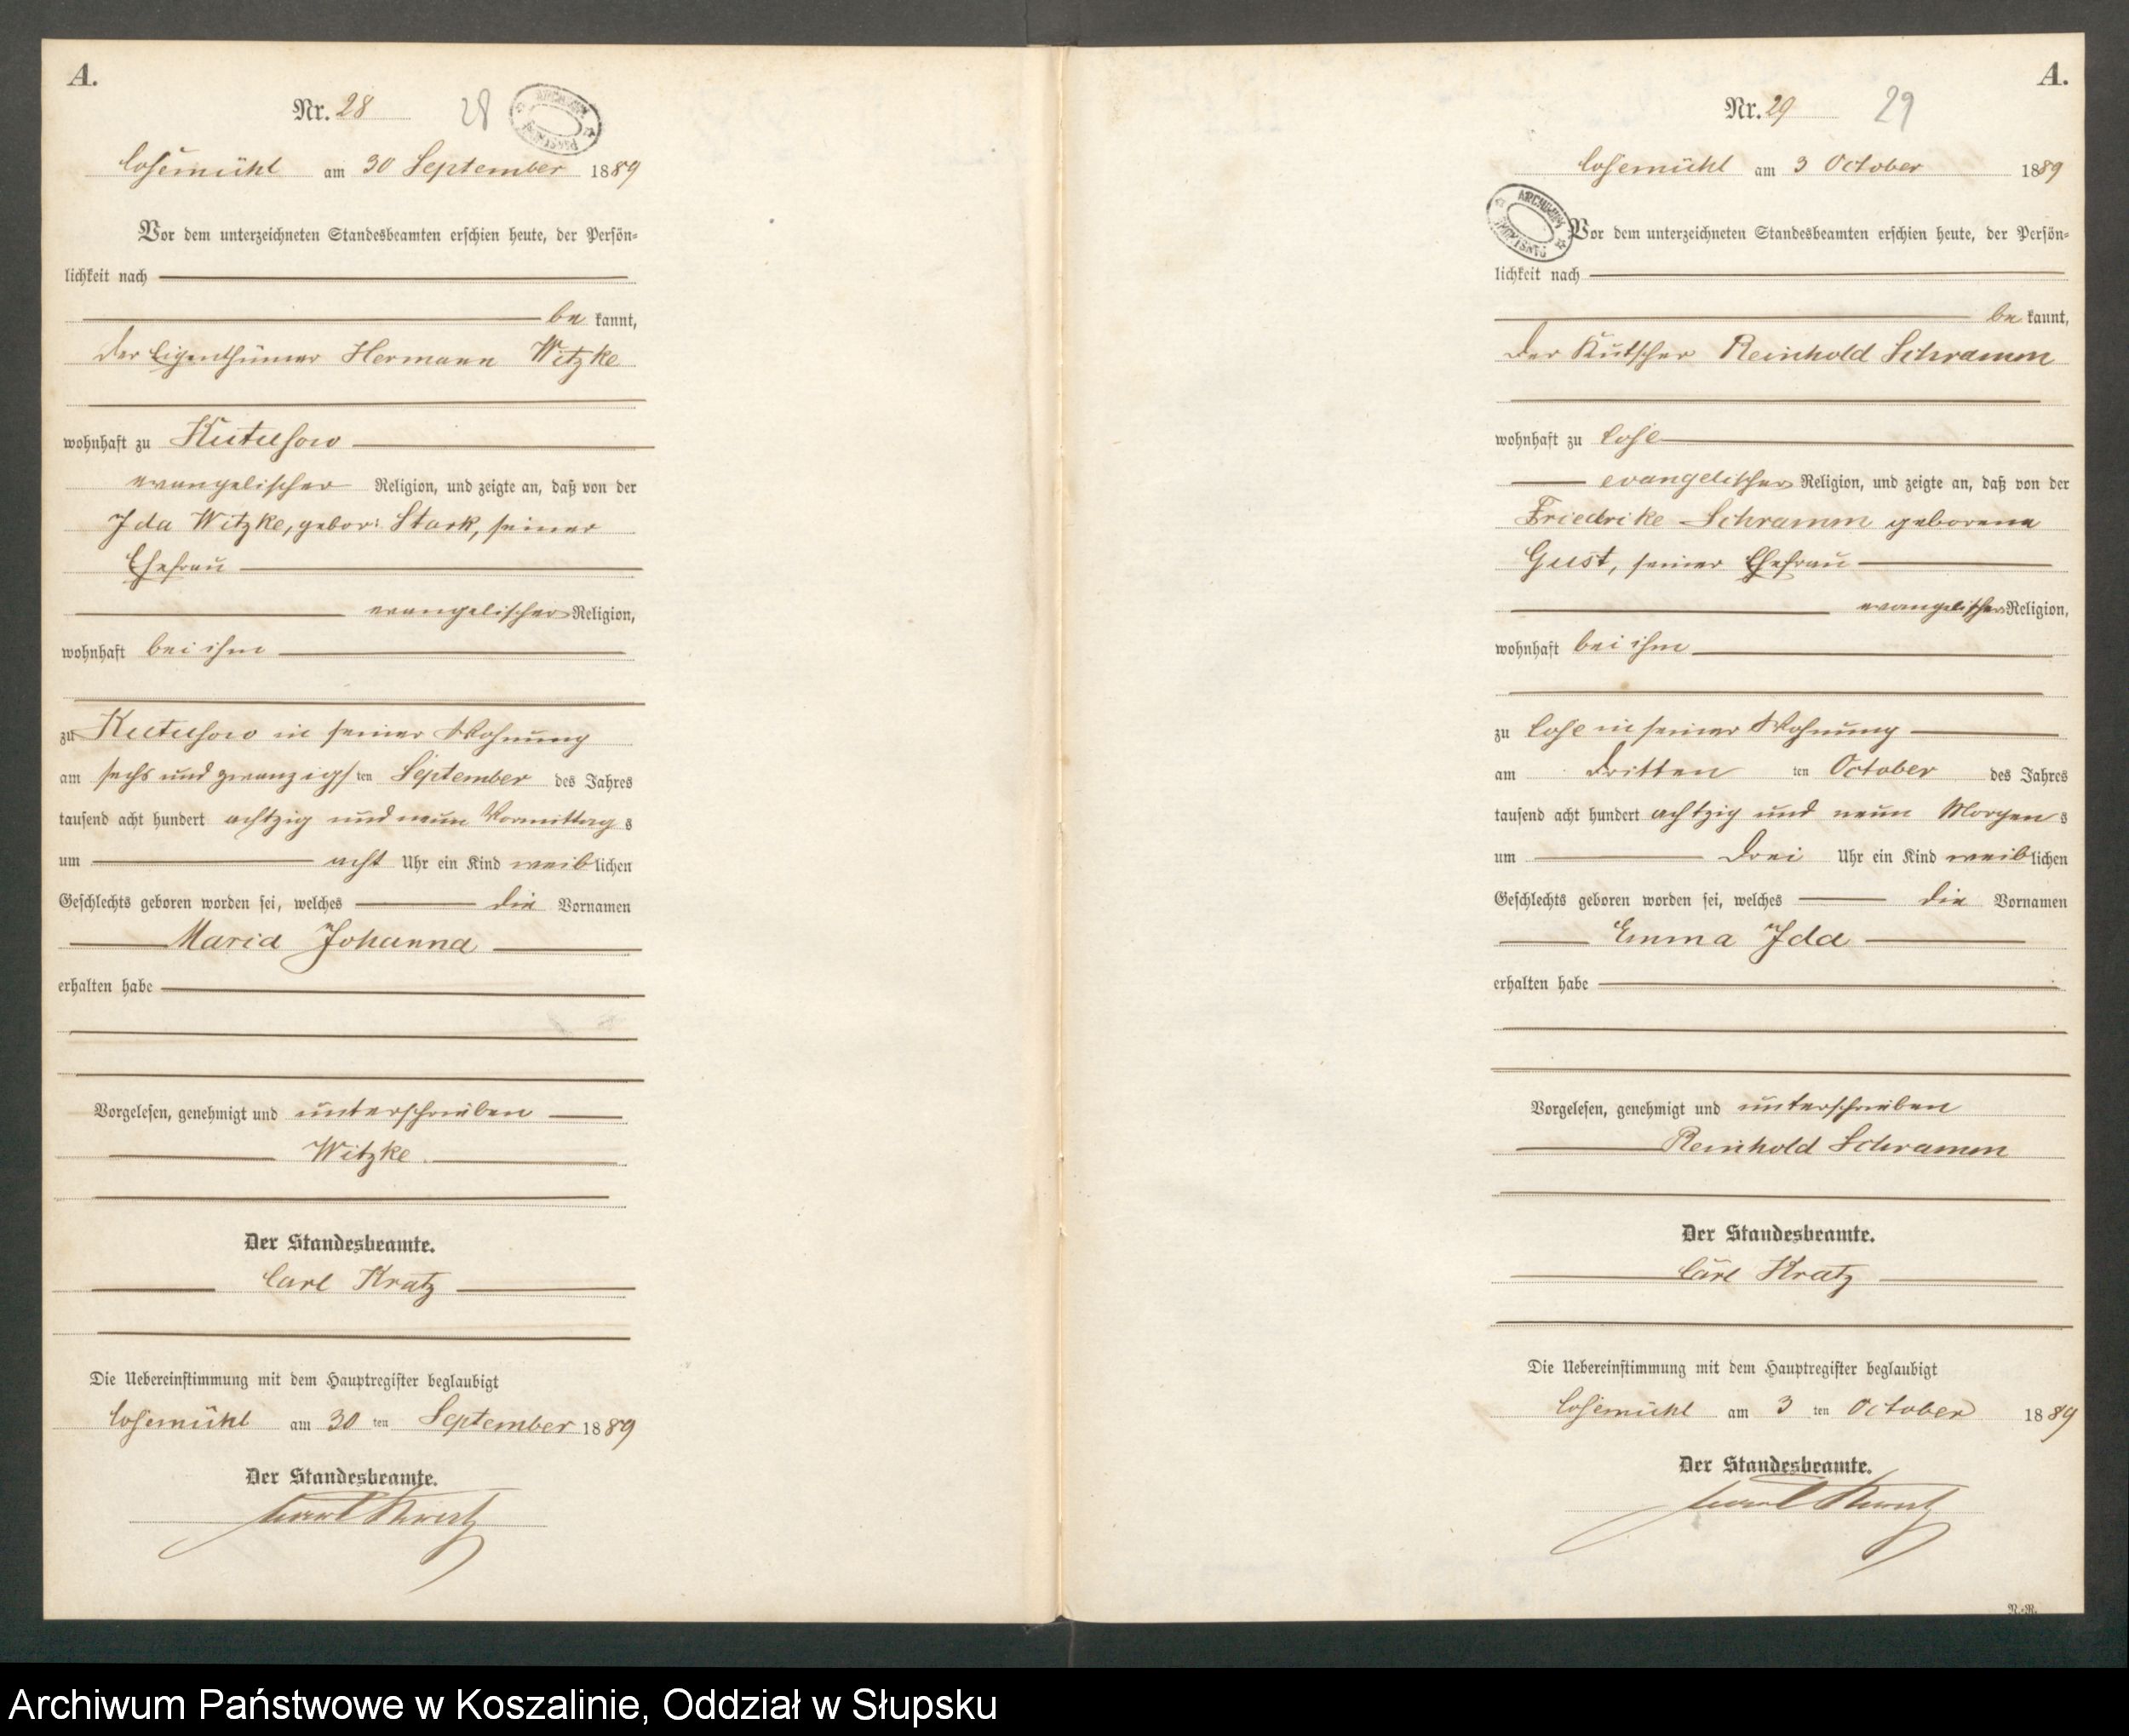 A.
Nr. 28
28
Cosemühl am 30 September 1889
Vor dem unterzeichneten Standesbeamten erschien heute, der Persön-
lichkeit nach
be kannt,
der Eigenthümer Hermann Witzke
wohnhaft zu Kutusow
evangelischer Religion, und zeigte an, daß von der
Ida Witzke, gebor: Stark, seiner
Ehefrau
evangelischer Religion,
wohnhaft bei ihm
zu Kutusow in seiner Wohnung
am sechs und zwanzigsten September des Jahres
tausend acht hundert achtzig und neun Vormittags
um acht Uhr ein Kind weiblichen
Geschlechts geboren worden sei, welches die Vornamen
Maria Johanna
erhalten habe
Vorgelesen, genehmigt und unterschrieben
Witzke.
Der Standesbeamte.
Carl Kratz
Die Uebereinstimmung mit dem Hauptregister beglaubigt
Cosemühl am 30 ten September 1889
Der Standesbeamte.
Carl Kratz
A.
Nr. 29
29
Cosemühl am 3 October 1889
ARCHIWUM PAŃSTWOWE
Vor dem unterzeichneten Standesbeamten erschien heute, der Persön-
lichkeit nach
be kannt,
der Kutscher Reinhold Schramm
wohnhaft zu Cose
evangelischer Religion, und zeigte an, daß von der
Friedrike Schramm geborene
Gust, seiner Ehefrau
evangelischer Religion,
wohnhaft bei ihm
zu Cose in seiner Wohnung
am dritten ten October des Jahres
tausend acht hundert achtzig und neun Morgens
um drei Uhr ein Kind weiblichen
Geschlechts geboren worden sei, welches die Vornamen
Emma Ida
erhalten habe
Vorgelesen, genehmigt und unterschrieben
Reinhold Schramm
Der Standesbeamte.
Carl Kratz
Die Uebereinstimmung mit dem Hauptregister beglaubigt
Cosemühl am 3 ten October 1889
Der Standesbeamte.
Carl Kratz
Archiwum Państwowe w Koszalinie, Oddział w Słupsku